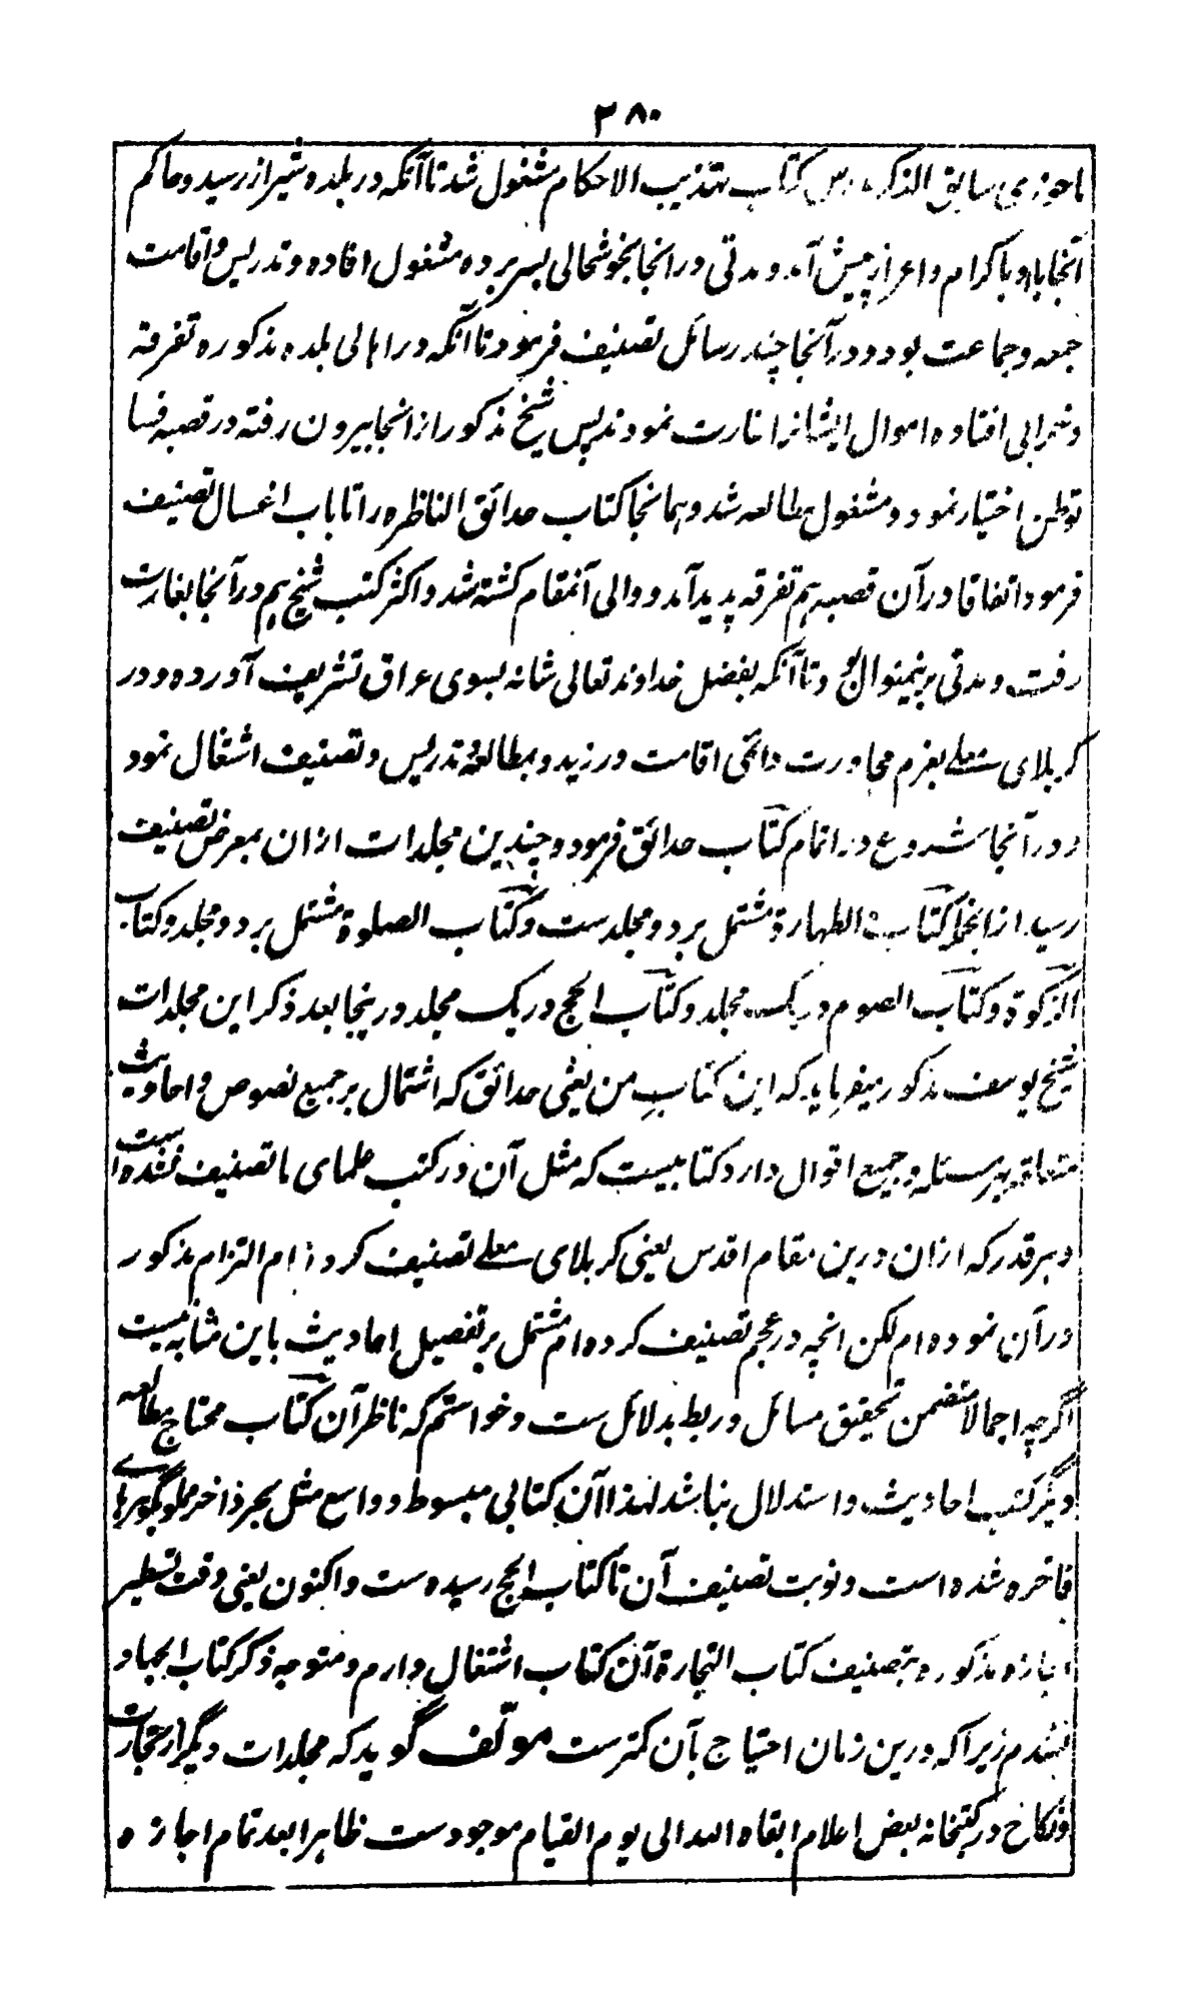 ۳۸۰
ماحوزی سابق الذکر درس کتاب تهذیب الاحکام مشغول شد تا آنکه در بلده شیراز رسید و حاکم
آنجا با او باکرام و اعزاز پیش آمد و مدتی در انجا بخوشحالی بسر برده مشغول افاده و تدریس و اقامت
جمعه و جماعت بود و در آنجا چند رسائل تصنیف فرمود تا آنکه در اهالی بلده مذکوره تفرقه
و خرابی افتاده اموال ایشانرا غارت نمودند پس شیخ مذکور از انجا بیرون رفته در قصبه فسا
توطن اختیار نمود و مشغول مطالعه شد و همانجا کتاب حدائق الناظره را تا باب اغسال تصنیف
فرمود اتفاقا در آن قصبه هم تفرقه پدید آمد و والی آنمقام کشته شد و اکثر کتب شیخ هم در آنجا بغارت
رفت و مدتی برینمنوال بود تا آنکه بفضل خداوند تعالی شانه بسوی عراق تشریف آورده و در
کربلای معلے بعزم مجاورت دائمی اقامت ورزید و بمطالعه و تدریس و تصنیف اشتغال نمود
و در آنجا شروع در اتمام کتاب حدائق فرمود و چندین مجلدات ازان بمعرض تصنیف
رسید ازانجمله کتاب الطهارة مشتمل بر دو مجلد ست و کتاب الصلوة مشتمل بر دو مجلد و کتاب
الزکوة و کتاب الصوم در یک مجلد و کتاب الحج در یک مجلد درینجا بعد ذکر این مجلدات
شیخ یوسف مذکور میفرماید که این کتاب من یعنی حدائق که اشتمال بر جمیع نصوص و احادیث
متعلقه بهر مسئله و جمیع اقوال دارد کتابیست که مثل آن در کتب علمای ما تصنیف نشده است
و هر قدر که ازان درین مقام اقدس یعنی کربلای معلے تصنیف کرده ام التزام مذکور
در آن نموده ام لکن انچه در عجم تصنیف کرده ام مشتمل بر تفصیل احادیث باین مثابه نیست
اگرچه اجمالا متضمن تحقیق مسائل و ربط بدلائل ست و خواستم که ناظر آن کتاب محتاج مطالعه
دیگر کتب احادیث و استدلال نباشد لهذا آن کتابی مبسوط و واسع مثل بحر ذاخر مملو بگوهرهای
فاخره شده است و نوبت تصنیف آن تا کتاب الحج رسیده ست و اکنون یعنی وقت تسطیر
اجازه مذکوره بتصنیف کتاب التجارة آن کتاب اشتغال دارم و متوجه ذکر کتاب الجهاد
نشدم زیرا که درین زمان احتیاج بآن کمترست مولّف گوید که مجلدات دیگر از تجارت
و نکاح در کتبخانه بعض اعلام ابقاه الله الی یوم القیام موجود ست ظاهرا بعد تمام اجازه